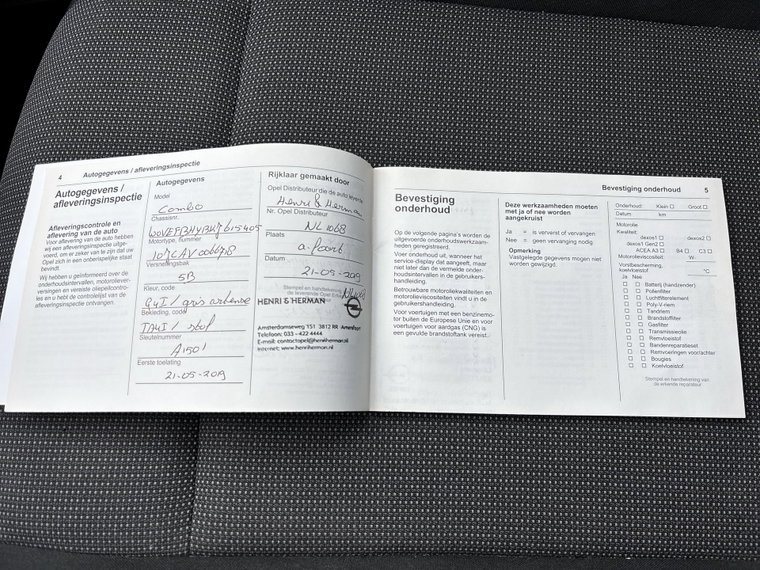 4 Autogegevens / afleveringsinspectie
Autogegevens /
afleveringsinspectie
Afleveringscontrole en
aflevering van de auto
Voor aflevering van de auto hebben
wij een afleveringsinspectie uitge-
voerd, om er zeker van te zijn dat uw
Opel zich in een onberispelijke staat
bevindt.
Wij hebben u geïnformeerd over de
onderhoudsintervallen, motorolever-
versingen en vereiste oliepeilcontro-
les en u hebt de controlelijst van de
afleveringsinspectie ontvangen.
Autogegevens
Combo
Chassisnr.
Motortype, nummer
Versnellingsbak
5B
Kleur, code
G4I / gris artense
Bekleding, code
/ stof
Sleutelnummer
A1501
Eerste toelating
21-05-2019
Rijklaar gemaakt door
Opel Distributeur die de auto levert
Henri & Herman
Nr. Opel Distributeur
NL 1068
Plaats
a-foort
Datum
21-05-2019
Stempel en handtekening van
de leverende Opel
HENRI & HERMAN
Amsterdamseweg 151 3812 RR Amersfoort
Telefoon: 033 - 422 4444
E-mail: contactopel@henriherman.nl
Internet: www.henriherman.nl
Bevestiging onderhoud 5
Bevestiging
onderhoud
Op de volgende pagina's worden de
uitgevoerde onderhoudswerkzaam-
heden geregistreerd.
Voer onderhoud uit, wanneer het
service display dat aangeeft, maar
niet later dan de vermelde onder-
houdsintervallen in de gebruikers-
handleiding.
Betrouwbare motoroliekwaliteiten en
motorolieviscositeiten vindt u in de
gebruikershandleiding.
Voor voertuigen met een benzinemo-
tor buiten de Europese Unie en voor
voertuigen voor aardgas (CNG) is
een gevulde brandstoftank vereist.
Deze werkzaamheden moeten
met ja of nee worden
aangekruist
Ja = is ververst of vervangen
Nee = geen vervanging nodig
Opmerking
Vastgelegde gegevens mogen niet
worden gewijzigd.
Onderhoud: Klein Groot
Datum km
Motorolie
Kwaliteit:
dexos1 dexos2
dexos1 Gen2
ACEA A3 B4 C3
Motorolieviscositeit: W-
Vorstbescherming,
koelvloeistof °C
Ja Nee
Batterij (handzender)
Pollenfilter
Luchtfilterelement
Poly-V-riem
Tandriem
Brandstoffilter
Gasfilter
Transmissieolie
Remvloeistof
Bandenreparatieset
Remvoeringen voor/achter
Bougies
Koelvloeistof
Stempel en handtekening van
de erkende reparateur